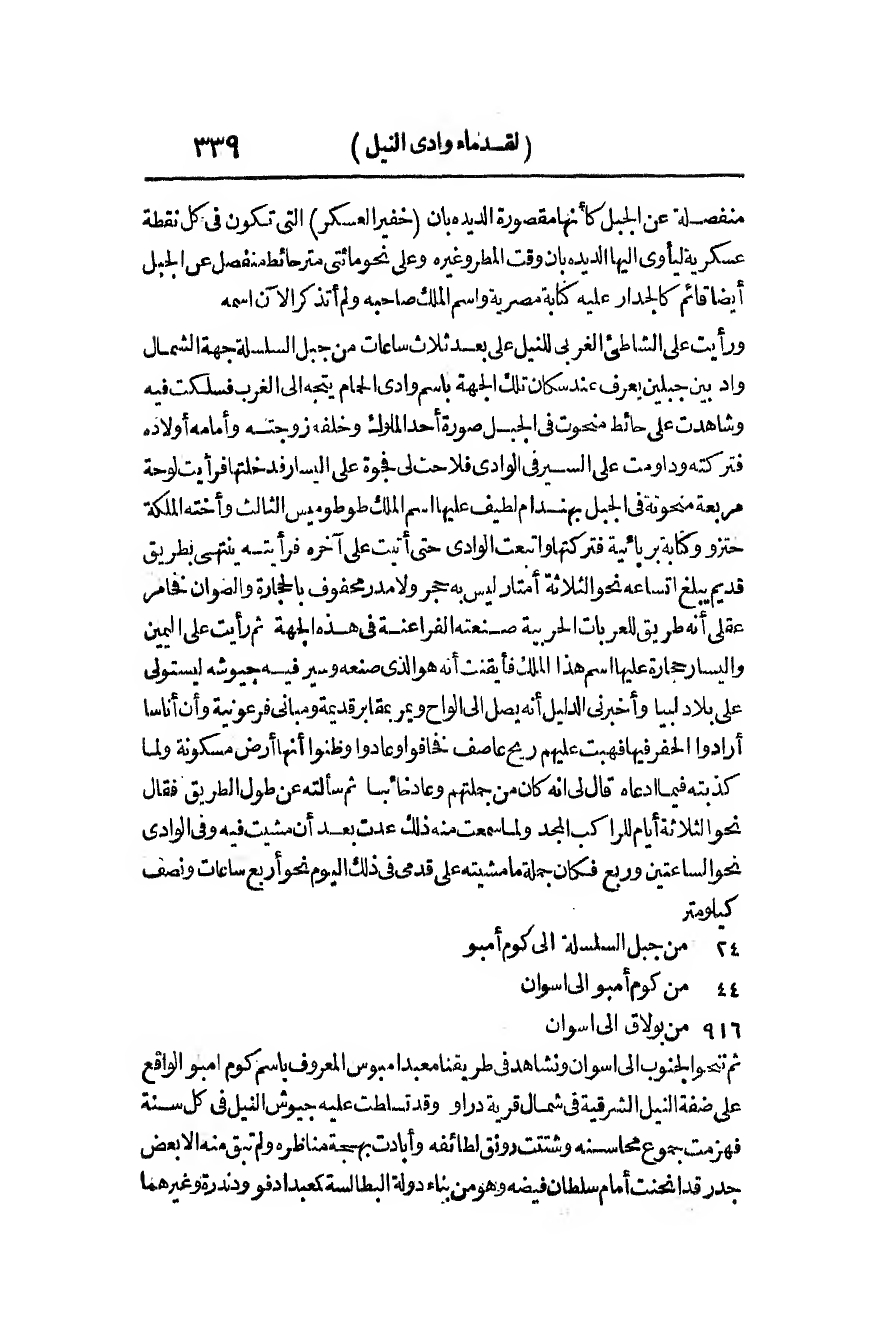 (لقدماء وادى النيل) ٣٣٩
منفصلة عن الجبل كأنها مقصورة الديده بان (خفير العسكر) التى تكون فى كل نقطة
عسكرية ليأوى اليها الديده بان وقت المطر وغيره وعلى نحو مائتى متر حائط منفصل عن الجبل
أيضا قائم كالجدار عليه كتابة مصرية واسم الملك صاحبه ولم أتذكر الآن اسمه
ورأيت على الشاطئ الغربى للنيل على بعد ثلاث ساعات من جبل السلسلة جهة الشمال
واد بين جبلين يعرف عند سكان تلك الجهة باسم وادى الحمام يتجه الى الغرب فسلكت فيه
وشاهدت على حائط منحوت فى الجبل صورة أحد الملوك وخلفه زوجته وأمامه أولاده
فتركته وداومت على السير فى الوادى فلاحت لى فجوة على اليسار فدخلتها فرأيت لوحة
مربعة منحوتة فى الجبل بهندام لطيف عليها اسم الملك طوطوميس الثالث وأخته الملكة
حتزو وكتابة بربائية فتركتها واتبعت الوادى حتى أتيت على آخره فرأيته ينتهى بطريق
قديم يبلغ اتساعه نحو الثلاثة أمتار ليس به حجر ولا مدر محفوف بالحجارة والصوان فخامر
عقلى أنه طريق للعربات الحربية صنعته الفراعنة فى هذه الجهة ثم رأيت على اليمين
واليسار حجارة عليها اسم هذا الملك فأيقنت أنه هو الذى صنعه وسير فيه جيوشه ليستولى
على بلاد ليبيا وأخبرنى الدليل أنه يصل الى الواح ويمر بمقابر قديمة ومبانى فرعونية وأن أناسا
أرادوا الحفر فيها فهبت عليهم ريح عاصف فخافوا وعادوا وظنوا أنها أرض مسكونة ولما
كذبته فيما ادعاه قال لى انه كان من جملتهم وعاد خائبا ثم سألته عن طول الطريق فقال
نحو الثلاثة أيام للراكب المجد ولما سمعت منه ذلك عدت بعد أن مشيت فيه وفى الوادى
نحو الساعتين وربع فكان جملة ما مشيته على قدمى فى ذلك اليوم نحو أربع ساعات ونصف
كيلومتر
٢٤ من جبل السلسلة الى كوم أمبو
٤٤ من كوم أمبو الى اسوان
٩١٦ من بولاق الى اسوان
ثم نتحو الجنوب الى اسوان ونشاهد فى طريقنا معبد امبوس المعروف باسم كوم امبو الواقع
على ضفة النيل الشرقية فى شمال قرية دراو وقد تسلطت عليه جيوش النيل فى كل سنة
فهزمت جموع محاسنه وشتتت رونق لطائفه وأبادت بهجة مناظره ولم تبق منه الا بعض
جدر قد انحنت أمام سلطان فيضه وهو من بناء دولة البطالسة كمعبد ادفو ودندرة وغيرهما